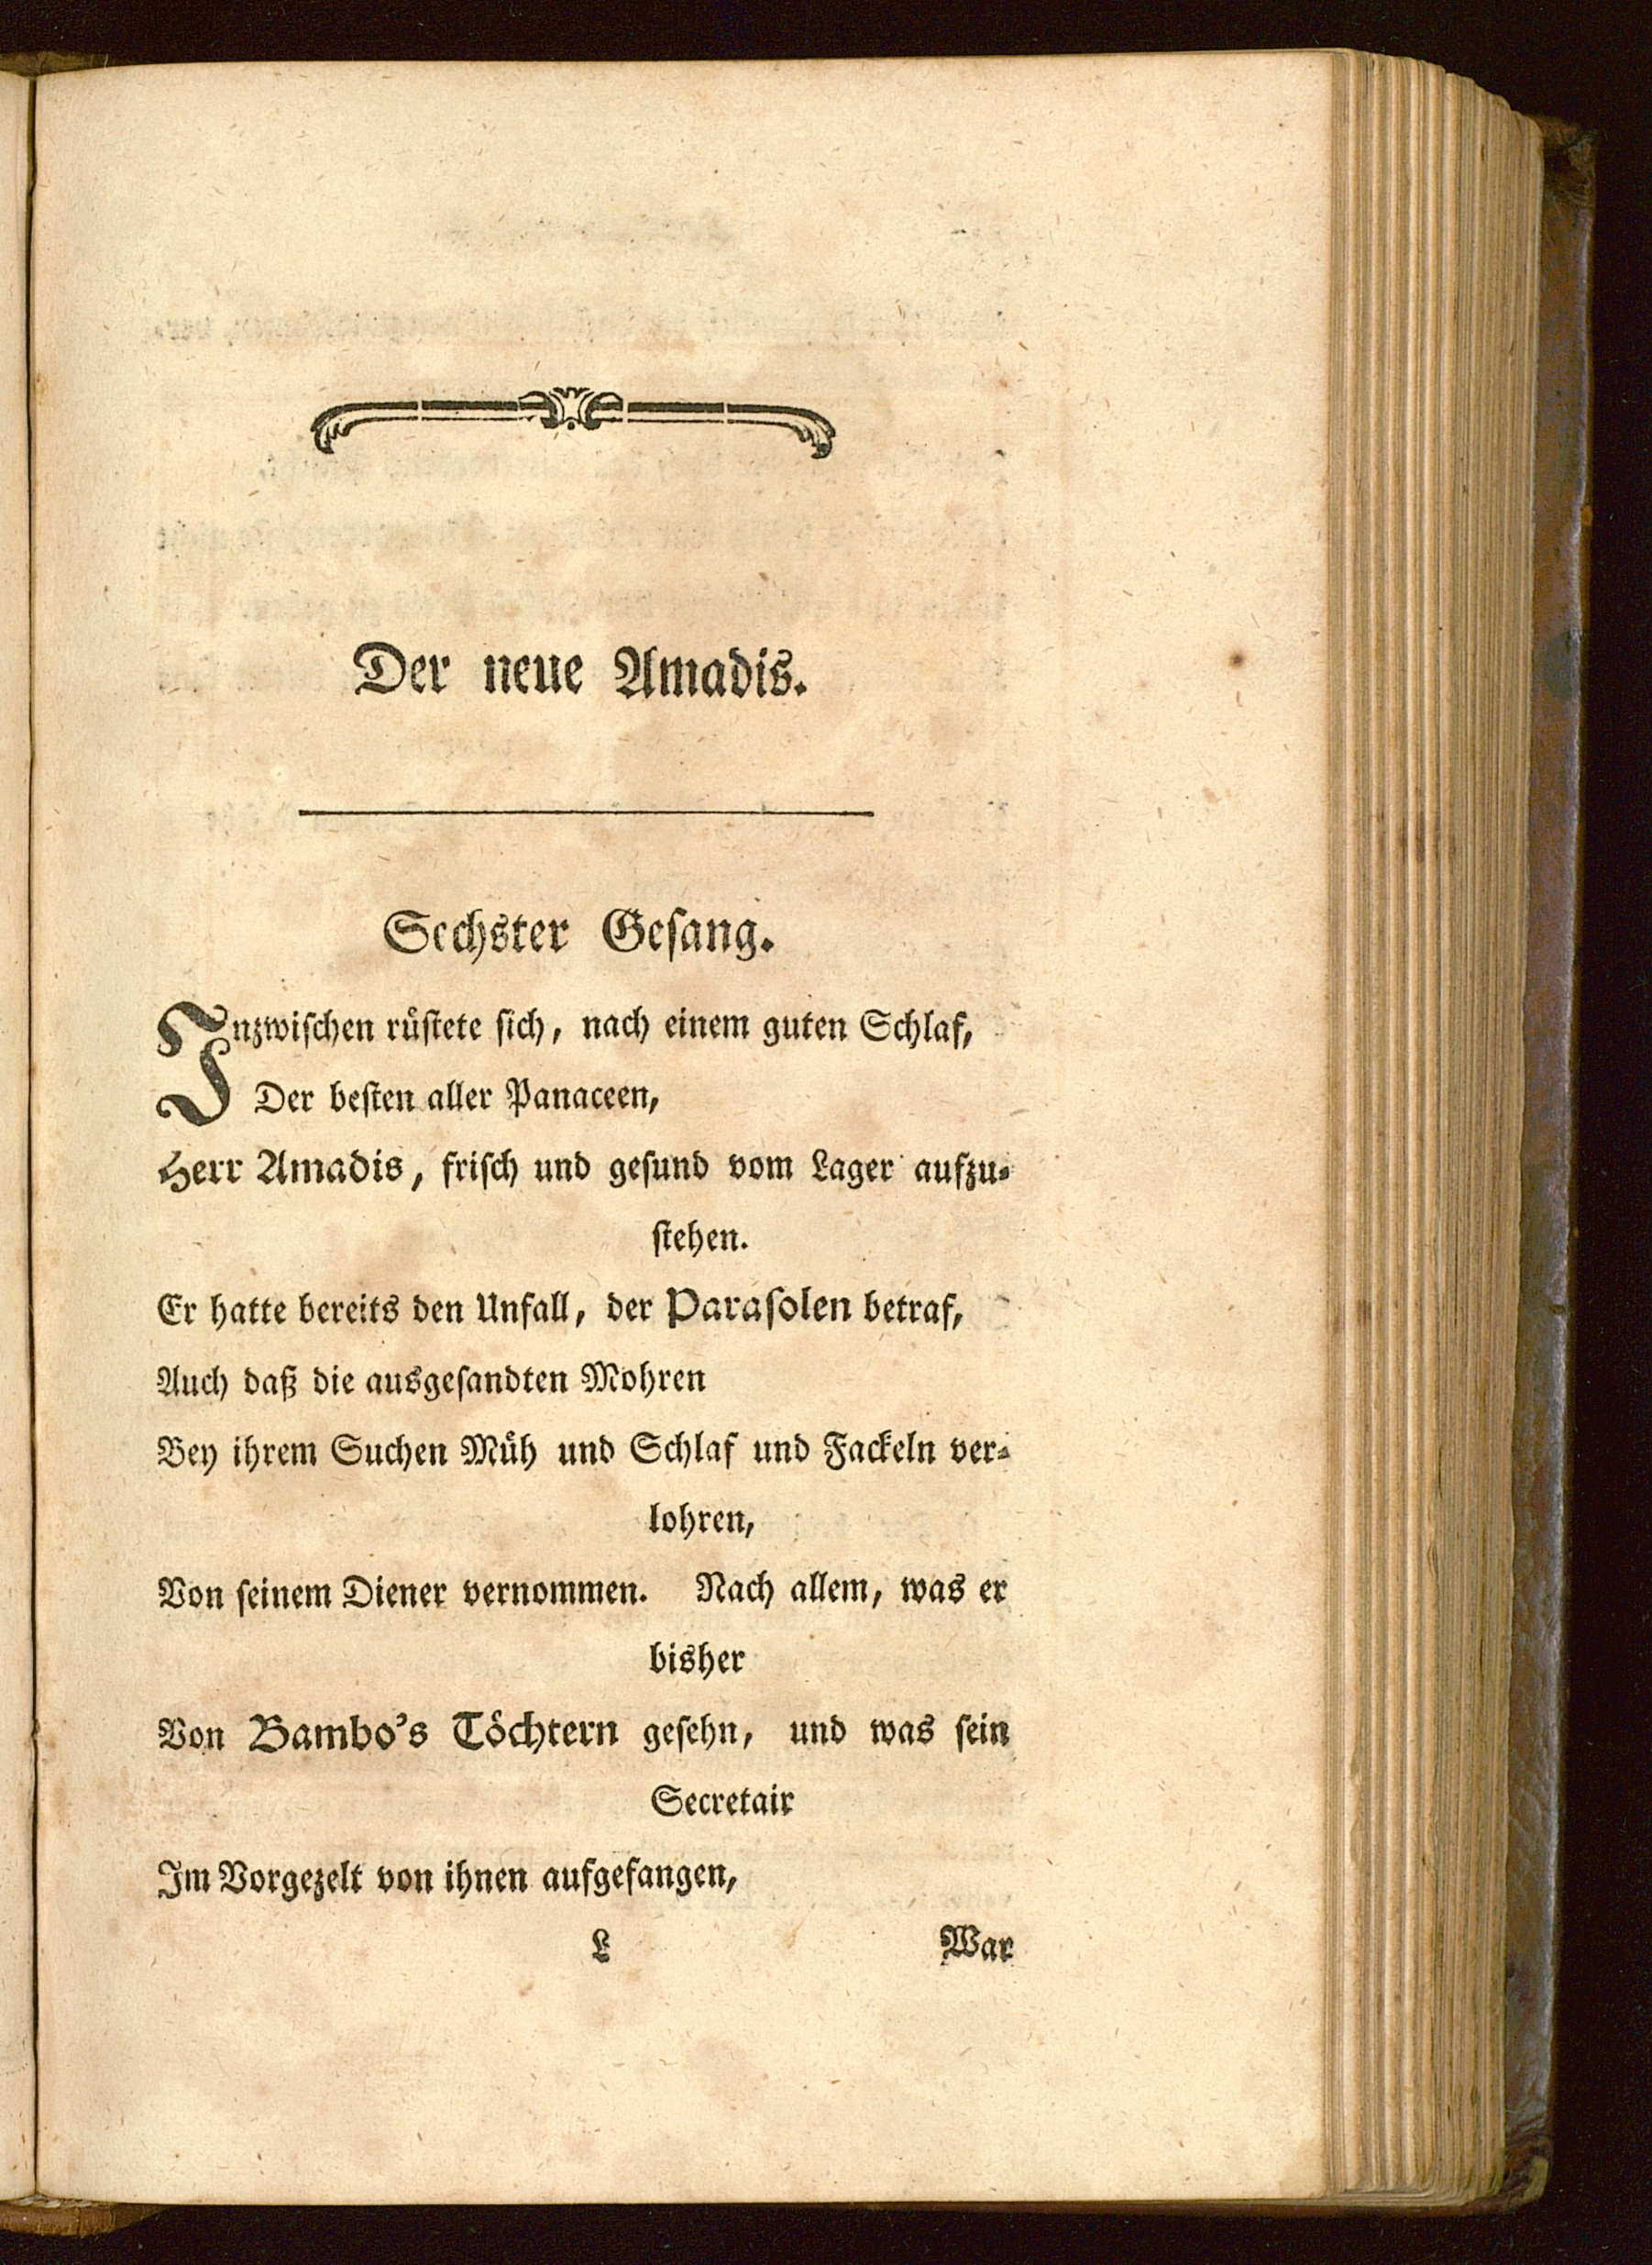 Der neue Amadis.
Sechster Gesang.
Inzwischen rüstete sich, nach einem guten Schlaf,
Der besten aller Panaceen,
Herr Amadis, frisch und gesund vom Lager aufzu-
stehen.
Er hatte bereits den Unfall, der Parasolen betraf,
Auch daß die ausgesandten Mohren
Bey ihrem Suchen Müh und Schlaf und Fackeln ver-
lohren,
Von seinem Diener vernommen. Nach allem, was er
bisher
Von Bambo's Töchtern gesehn, und was sein
Secretair
Im Vorgezelt von ihnen aufgefangen,
L War